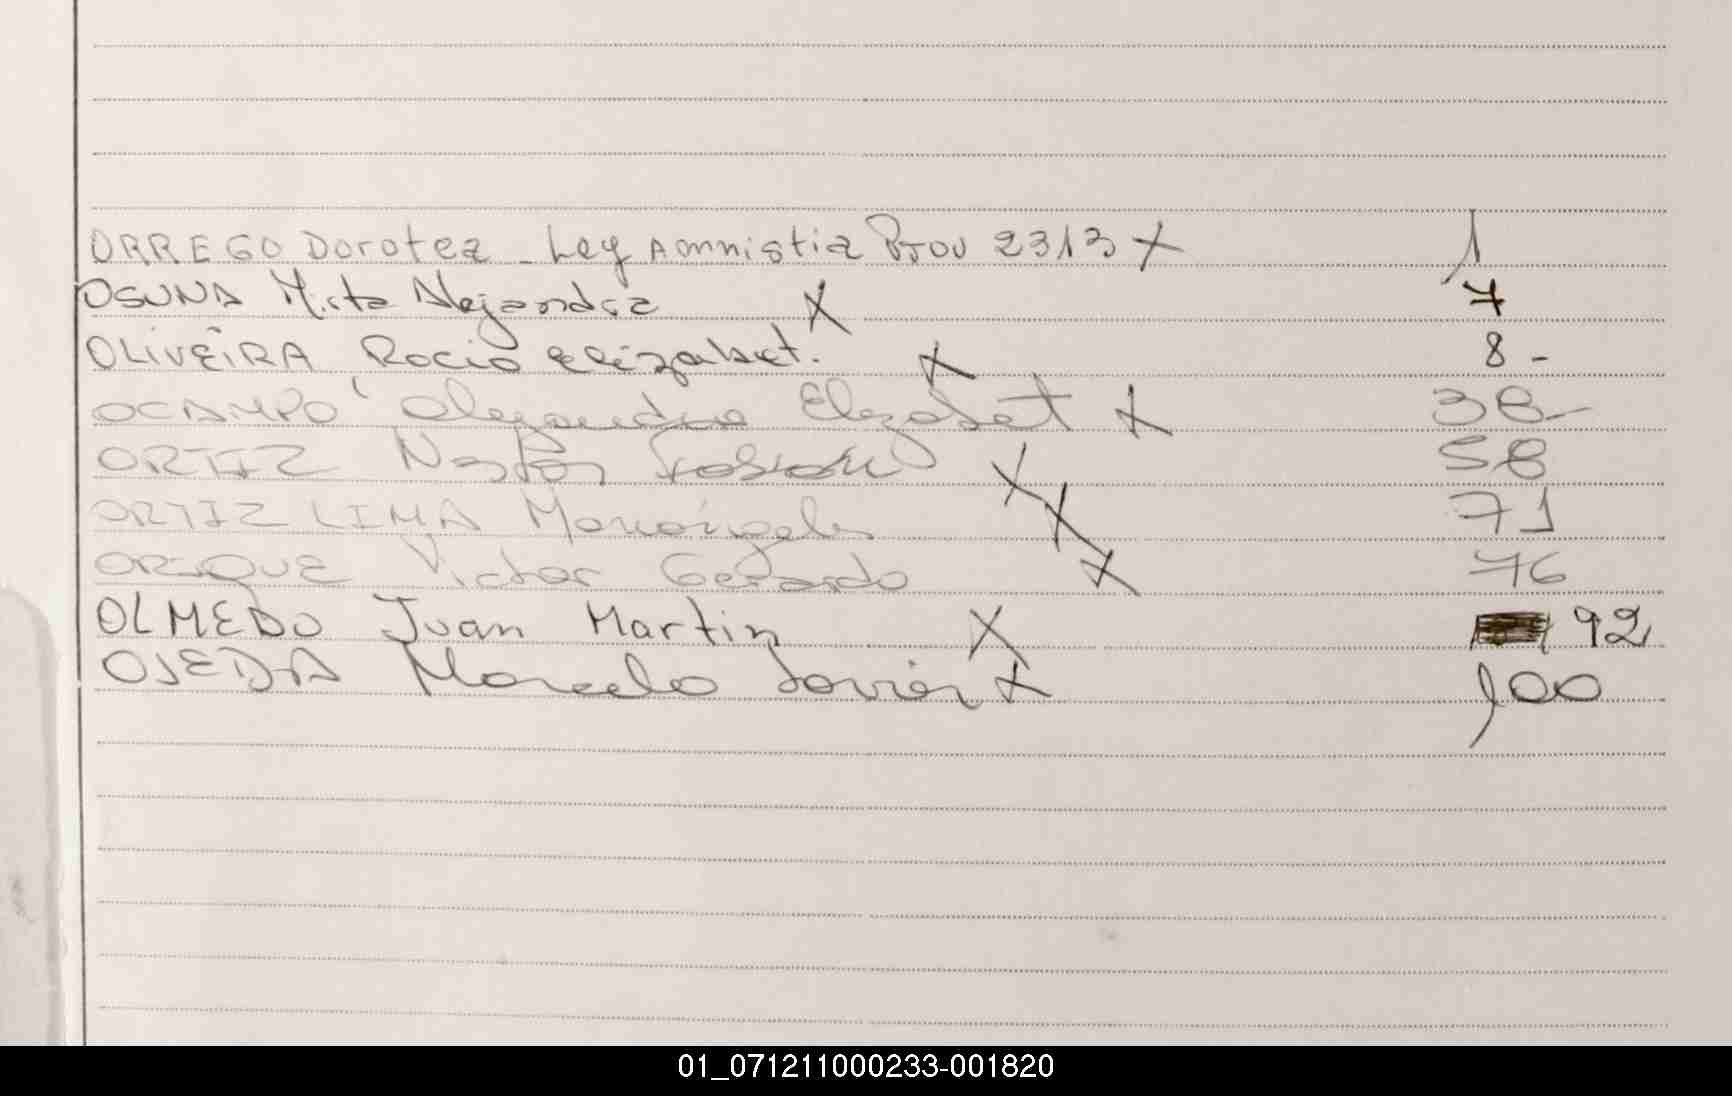 ORREGO Dorotea - Ley Amnistia Prov 2313 X 1
OSUNA Mirta Alejandra X 7
OLIVEIRA Rocio Elizabet. X 8 -
OCAMPO Alejandra Elizabet X 38-
ORTIZ Nestor Fabian X 58
ORTIZ LIMA Mariangeles X 71
OROQUE Victor Gerardo X 76
OLMEDO Juan Martin X 92
OJEDA Marcelo Javier X 100
01_071211000233-001820